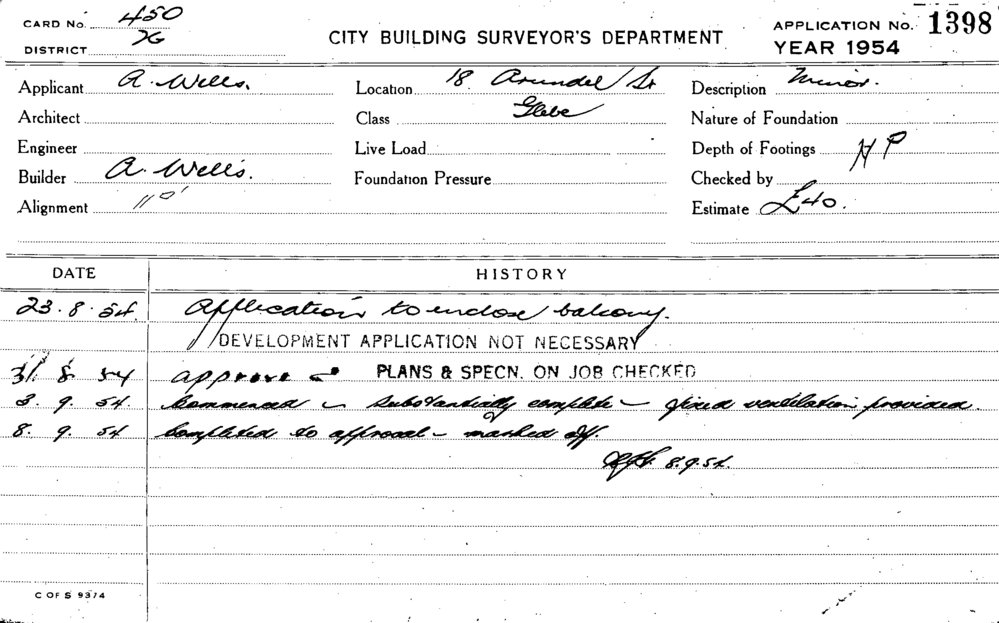 CARD No. 450
DISTRICT
CITY BUILDING SURVEYOR'S DEPARTMENT
APPLICATION No. 1398
YEAR 1954
Applicant A. Wells.
Location 18 Arundel St
Description Minor.
Architect
Class Glebe
Nature of Foundation
Engineer
Live Load
Depth of Footings
Builder A. Wells.
Foundation Pressure
Checked by
Alignment
Estimate £40.
DATE HISTORY
23.8.54. Application to enclose balcony.
DEVELOPMENT APPLICATION NOT NECESSARY
31 8 54 approve PLANS & SPECN. ON JOB CHECKED
3. 9. 54. Commenced – substantially complete – fixed ventilation provided.
8. 9. 54 Completed to approval – marked off.
8.9.54.
C OF S 9374